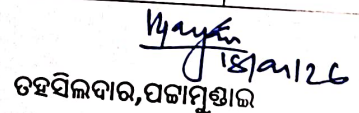 18/01/26
ତହସିଲଦାର,ପଟ୍ଟାମୁଣ୍ଡାଇ